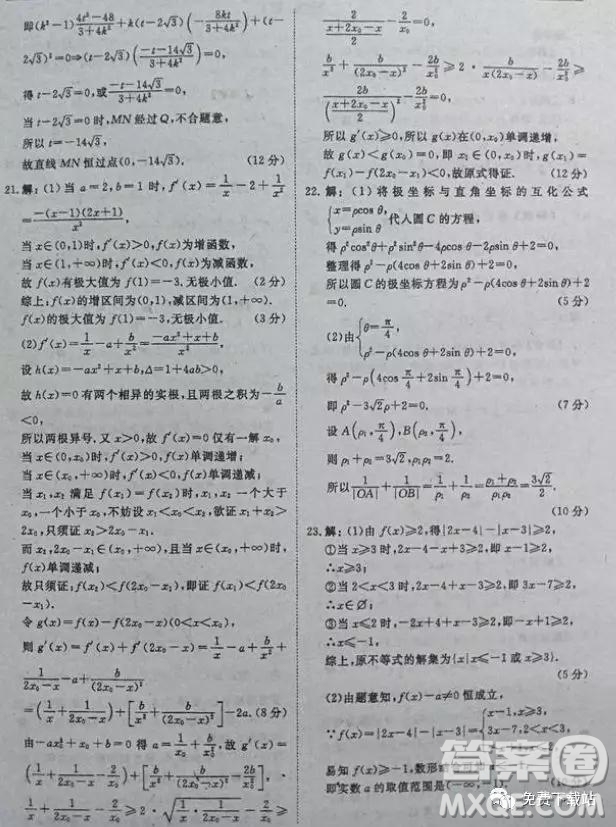 即(k²-1)\frac{4t²-48}{3+4k²}+k(t-2√3)(-\frac{8kt}{3+4k²})+(t-
2√3)²=0⇒(t-2√3)(\frac{-t-14√3}{3+4k²})=0,
得 t-2√3=0,或\frac{-t-14√3}{3+4k²}=0,
当 t-2√3=0时,MN经过Q,不合题意,
所以 t=-14√3,
故直线MN恒过点(0,-14√3). (12分)
21.解:(1)当a=2,b=1时,f′(x)=\frac{1}{x}-2+\frac{1}{x²}
=\frac{-(x-1)(2x+1)}{x²},
当x∈(0,1)时,f′(x)>0,f(x)为增函数,
当x∈(1,+∞)时,f′(x)<0,f(x)为减函数,
故f(x)有极大值为f(1)=-3,无极小值. (2分)
综上,f(x)的增区间为(0,1),减区间为(1,+∞).
f(x)的极大值为f(1)=-3,无极小值. (3分)
(2)f′(x)=\frac{1}{x}-a+\frac{b}{x²}=\frac{-ax²+x+b}{x²},
设h(x)=-ax²+x+b,Δ=1+4ab>0,
故h(x)=0有两个相异的实根,且两根之积为-\frac{b}{a}
<0,
所以两根异号.又x>0,故f′(x)=0仅有一解x₀,
当x∈(0,x₀)时,f′(x)>0,f(x)单调递增;
当x∈(x₀,+∞)时,f′(x)<0,f(x)单调递减;
当x₁,x₂满足f(x₁)=f(x₂)时,x₁,x₂一个大于
x₀,一个小于x₀,不妨设x₁<x₀<x₂,欲证x₁+x₂>
2x₀,只须证x₂>2x₀-x₁.
而x₂,2x₀-x₁∈(x₀,+∞),且当x∈(x₀,+∞)时,
f(x)单调递减;
故只须证:f(x₂)<f(2x₀-x₁),即证f(x₁)<f(2x₀
-x₁).
令g(x)=f(x)-f(2x₀-x)(0<x<x₀),
则g′(x)=f′(x)+f′(2x₀-x)=\frac{1}{x}-a+\frac{b}{x²}+
\frac{1}{2x₀-x}-a+\frac{b}{(2x₀-x)²}
=(\frac{1}{x}+\frac{1}{2x₀-x})+[\frac{b}{x²}+\frac{b}{(2x₀-x)²}]-2a.(8分)
由-ax₀²+x₀+b=0得a=\frac{1}{x₀}+\frac{b}{x₀²},故g′(x)=
(\frac{1}{x}+\frac{1}{2x₀-x})+[\frac{b}{x²}+\frac{b}{(2x₀-x)²}]-\frac{2}{x₀}-\frac{2b}{x₀²}.
\frac{1}{x}+\frac{1}{2x₀-x}-\frac{2}{x₀}≥2·√{\frac{1}{x}·\frac{1}{2x₀-x}}-\frac{2}{x₀}≥
\frac{2}{\frac{x+2x₀-x}{2}}-\frac{2}{x₀}=0,
\frac{b}{x²}+\frac{b}{(2x₀-x)²}-\frac{2b}{x₀²}≥2·\frac{b}{x(2x₀-x)}-\frac{2b}{x₀²}≥
\frac{2b}{(\frac{x+2x₀-x}{2})²}-\frac{2b}{x₀²}=0,
所以g′(x)≥0,所以g(x)在(0,x₀)单调递增,
故g(x)<g(x₀)=0,即x₁∈(0,x₀)时,g(x₁)=
f(x₁)-f(2x₀-x₁)<0,故原式得证. (12分)
22.解:(1)将极坐标与直角坐标的互化公式
{x=ρcos θ, y=ρsin θ 代入圆C的方程,
得ρ²cos²θ+ρ²sin²θ-4ρcos θ-2ρsin θ+2=0,
整理得ρ²-ρ(4cos θ+2sin θ)+2=0,
所以圆C的极坐标方程为ρ²-ρ(4cos θ+2sin θ)+2
=0. (5分)
(2)由{θ=\frac{π}{4}, ρ²-ρ(4cos θ+2sin θ)+2=0,
得ρ²-ρ(4cos\frac{π}{4}+2sin\frac{π}{4})+2=0,
即ρ²-3√2ρ+2=0. (7分)
设A(ρ₁,\frac{π}{4}),B(ρ₂,\frac{π}{4}),
则ρ₁+ρ₂=3√2,ρ₁ρ₂=2.
所以\frac{1}{|OA|}+\frac{1}{|OB|}=\frac{1}{ρ₁}+\frac{1}{ρ₂}=\frac{ρ₁+ρ₂}{ρ₁ρ₂}=\frac{3√2}{2}.
(10分)
23.解:(1)由f(x)≥2,得|2x-4|-|x-3|≥2,
①当x≥3时,2x-4-x+3≥2,即x-1≥2,
∴x≥3;
②当2<x<3时,2x-4+x-3≥2,即3x-7≥2,
∴x∈∅;
③当x≤2时,-2x+4+x-3≥2,即-x+1≥2,
∴x≤-1,
综上,原不等式的解集为{x|x≤-1或x≥3}.
(5分)
(2)由题意知,f(x)-a≠0恒成立,
∵f(x)=|2x-4|-|x-3|={x-1,x≥3, 3x-7,2<x<
易知f(x)≥-1,数形结合
即实数a的取值范围是(-∞,-1).
答案圈
MXQE.COM
免费下载站